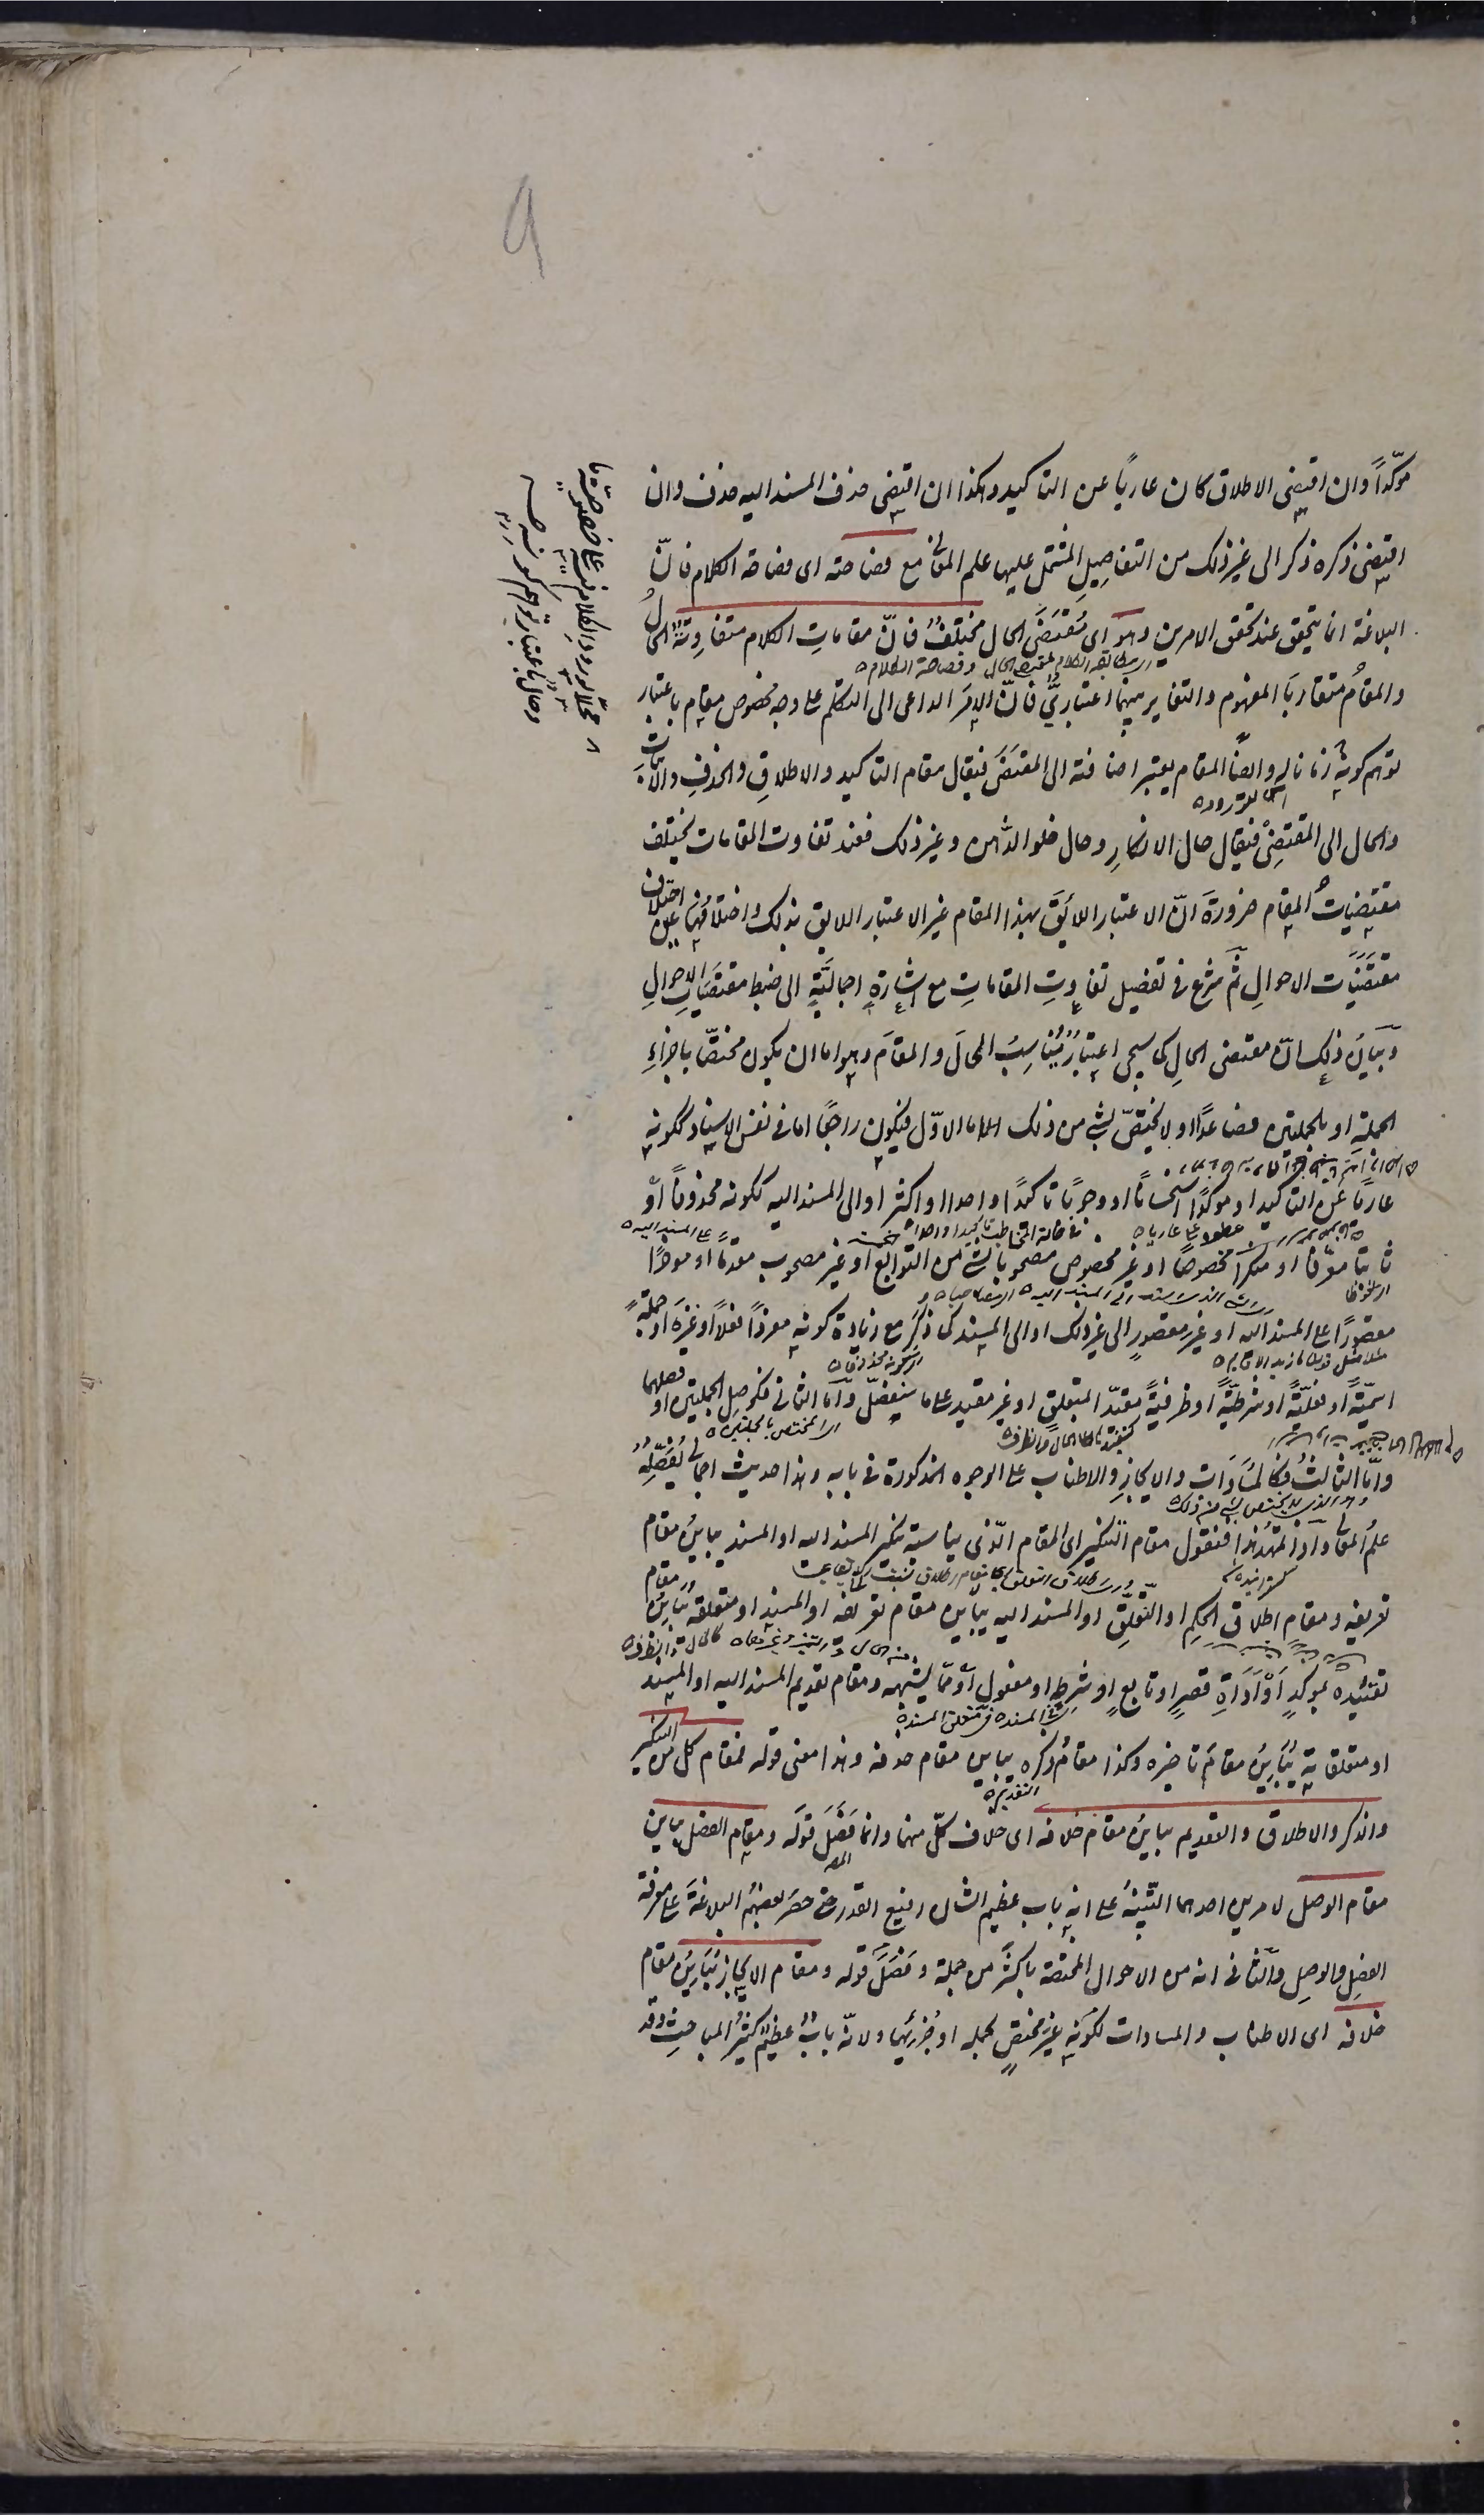 مؤكّداً وان اقتضى الاطلاق كان عاريًا عن التاكيد وهكذا ان اقتضى حذف المسند اليه حذف وان
اقتضى ذكره ذكر الى غير ذلك من التفاصيل المشتمل عليها علم المعانى مع فصاحته اى فصاحة الكلام فانّ
البلاغة انما يتحقق عند تحقق الامرين وهو اى مُقتضَى الحال مختلفٌ فانّ مقاماتِ الكلام متفاوِتةٌ الحالُ
اى مطابقة الكلام لمقتضى الحال وفصاحة الكلام
والمقامُ متقاربَا المفهوم والتغاير بينهما اعتباريٌّ فانّ الامرَ الداعى الى التكلم على وجه مخصوص مقام باعتبار
توهم كونه زمانا له وايضًا المقام يعتبر اضافته الى المقتضَى فيقال مقام التاكيد والاطلاقِ والحذفِ والاثباتِ
والحال الى المقتضِى فيقال حال الانكارِ وحال خلو الذهن وغير ذلك فعند تفاوت المقامات يختلف
مقتضياتُ المقام ضرورةَ انّ الاعتبار اللائقَ بهذا المقام غير الاعتبار اللايق بذلك واختلافُها عين اختلاف
مقتضَيات الاحوالِ ثم شرع فى تفصيل تفاوتِ المقاماتِ مع اشارةٍ اجماليّةٍ الى ضبط مقتضَيات الاحوالِ
وبيانُ ذلك انّ مقتضى الحالِ كما سيجى اعتبارٌ يُناسِبُ الحالَ والمقامَ وهو اما ان يكون مختصًّا باجزاءِ
الجملة او بالجملتين فصاعدًا او لا يختصّ بشئ من ذلك اما الاوّل فيكون راجعًا اما فى نفس الاسناد ككونه
عاريًا عن التاكيد او موكّدًا استحسانًا او وجوبًا تاكيدًا واحدا او اكثر او الى المسند اليه ككونه محذوفًا او
ثابتا معرّفا او منكرا مخصوصًا او غير مخصوص مصحوبا بشئ من التوابع او غير مصحوب مقدّمًا او موخرًا
مقصورًا على المسند اليه او غيرَ مقصورٍ الى غير ذلك او الى المسند كما ذكرَ مع زيادة كونه مفردًا فعلًا او غيرَه او جملةً
اسميّةً او فعليّةً او شرطيّةً او ظرفيةً مقيّدَ المتعلق او غير مقيد على ما سنفصّل وامّا الثانى فكوصل الجملتين او فصلهما
وامّا الثالثُ فكالمُساوات والايجازِ والاطناب على الوجوه المذكورة فى بابه وهذا حديث اجمالى يُفصِّلُه
وهو الذى لا يختص بشئ من ذلك
علمُ المعانى واذا تمهّد هذا فنقول مقام التنكير اى المقام الّذى يناسبه تنكير المسند اليه او المسند يباينُ مقام
تعريفه ومقام اطلاق الحكمِ او التعلّقِ او المسند اليه يباين مقام تعريفه او المسند او متعلقه يُباينُ مقام
تقييده بموكدٍ او أداةِ قصرٍ او تابعٍ او شرطٍ او مفعولٍ او ممّا يشبهه ومقام تقديم المسند اليه او المسند
او متعلقاته يُباينُ مقامَ تاخيره وكذا مقامُ ذكره يباين مقام حذفه وهذا معنى قوله فمقام كل من التنكير
والذكر والاطلاق والتقديم يباينُ مقام خلافه اى خلاف كلّ منها وانما فصَّل قولَه ومقام الفصل يباين
مقام الوصل لامرين احدهما التنبيهُ على انه باب عظيم الشان رفيع القدر حتى حصرَ بعضهم البلاغةَ على معرفة
الفصل والوصل والثانى انه من الاحوال المختصة باكثرَ من جملة وفصَّلَ قوله ومقام الايجاز يُبَاينُ مقام
خلافه اى الاطناب والمساوات لكونه غير مختصٍ بجملة او جُزئها ولانّه بابٌ عظيمٌ كثيرُ المباحثِ وقد
محلًا لورود الكلام فيه على خصوصيّة ما
وحال باعتبار توهم كونه